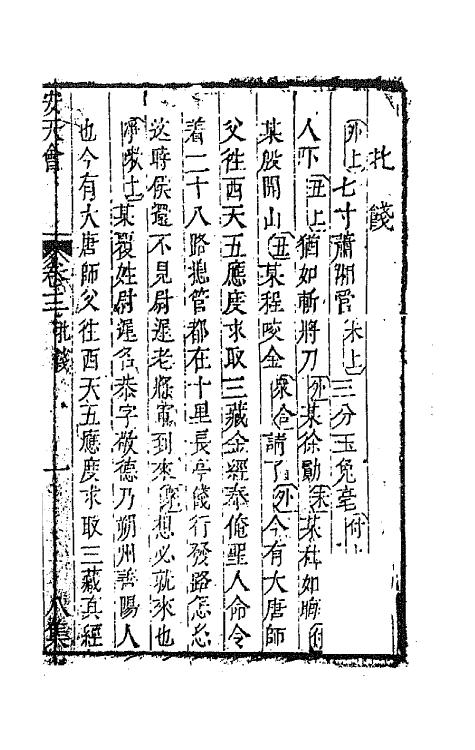 北餞
外上七寸蕭湘管末上三分玉兔毫付上
人下丑上猶如斬將刀外某徐勣末某杜如晦付
某殷開山丑某程咬金衆合請了外今有大唐師
父往西天五應度求取三藏金經奉俺聖人命令
着二十八路總管都在十里長亭餞行發路怎怎
这時侯還不見尉遲老將軍到來衆想必就來也
淨嗽上某覆姓尉遲名恭字敬德乃朔州善陽人
也今有大唐師父往西天五應度求取三藏真經
安天會
卷三
北餞
一
八集